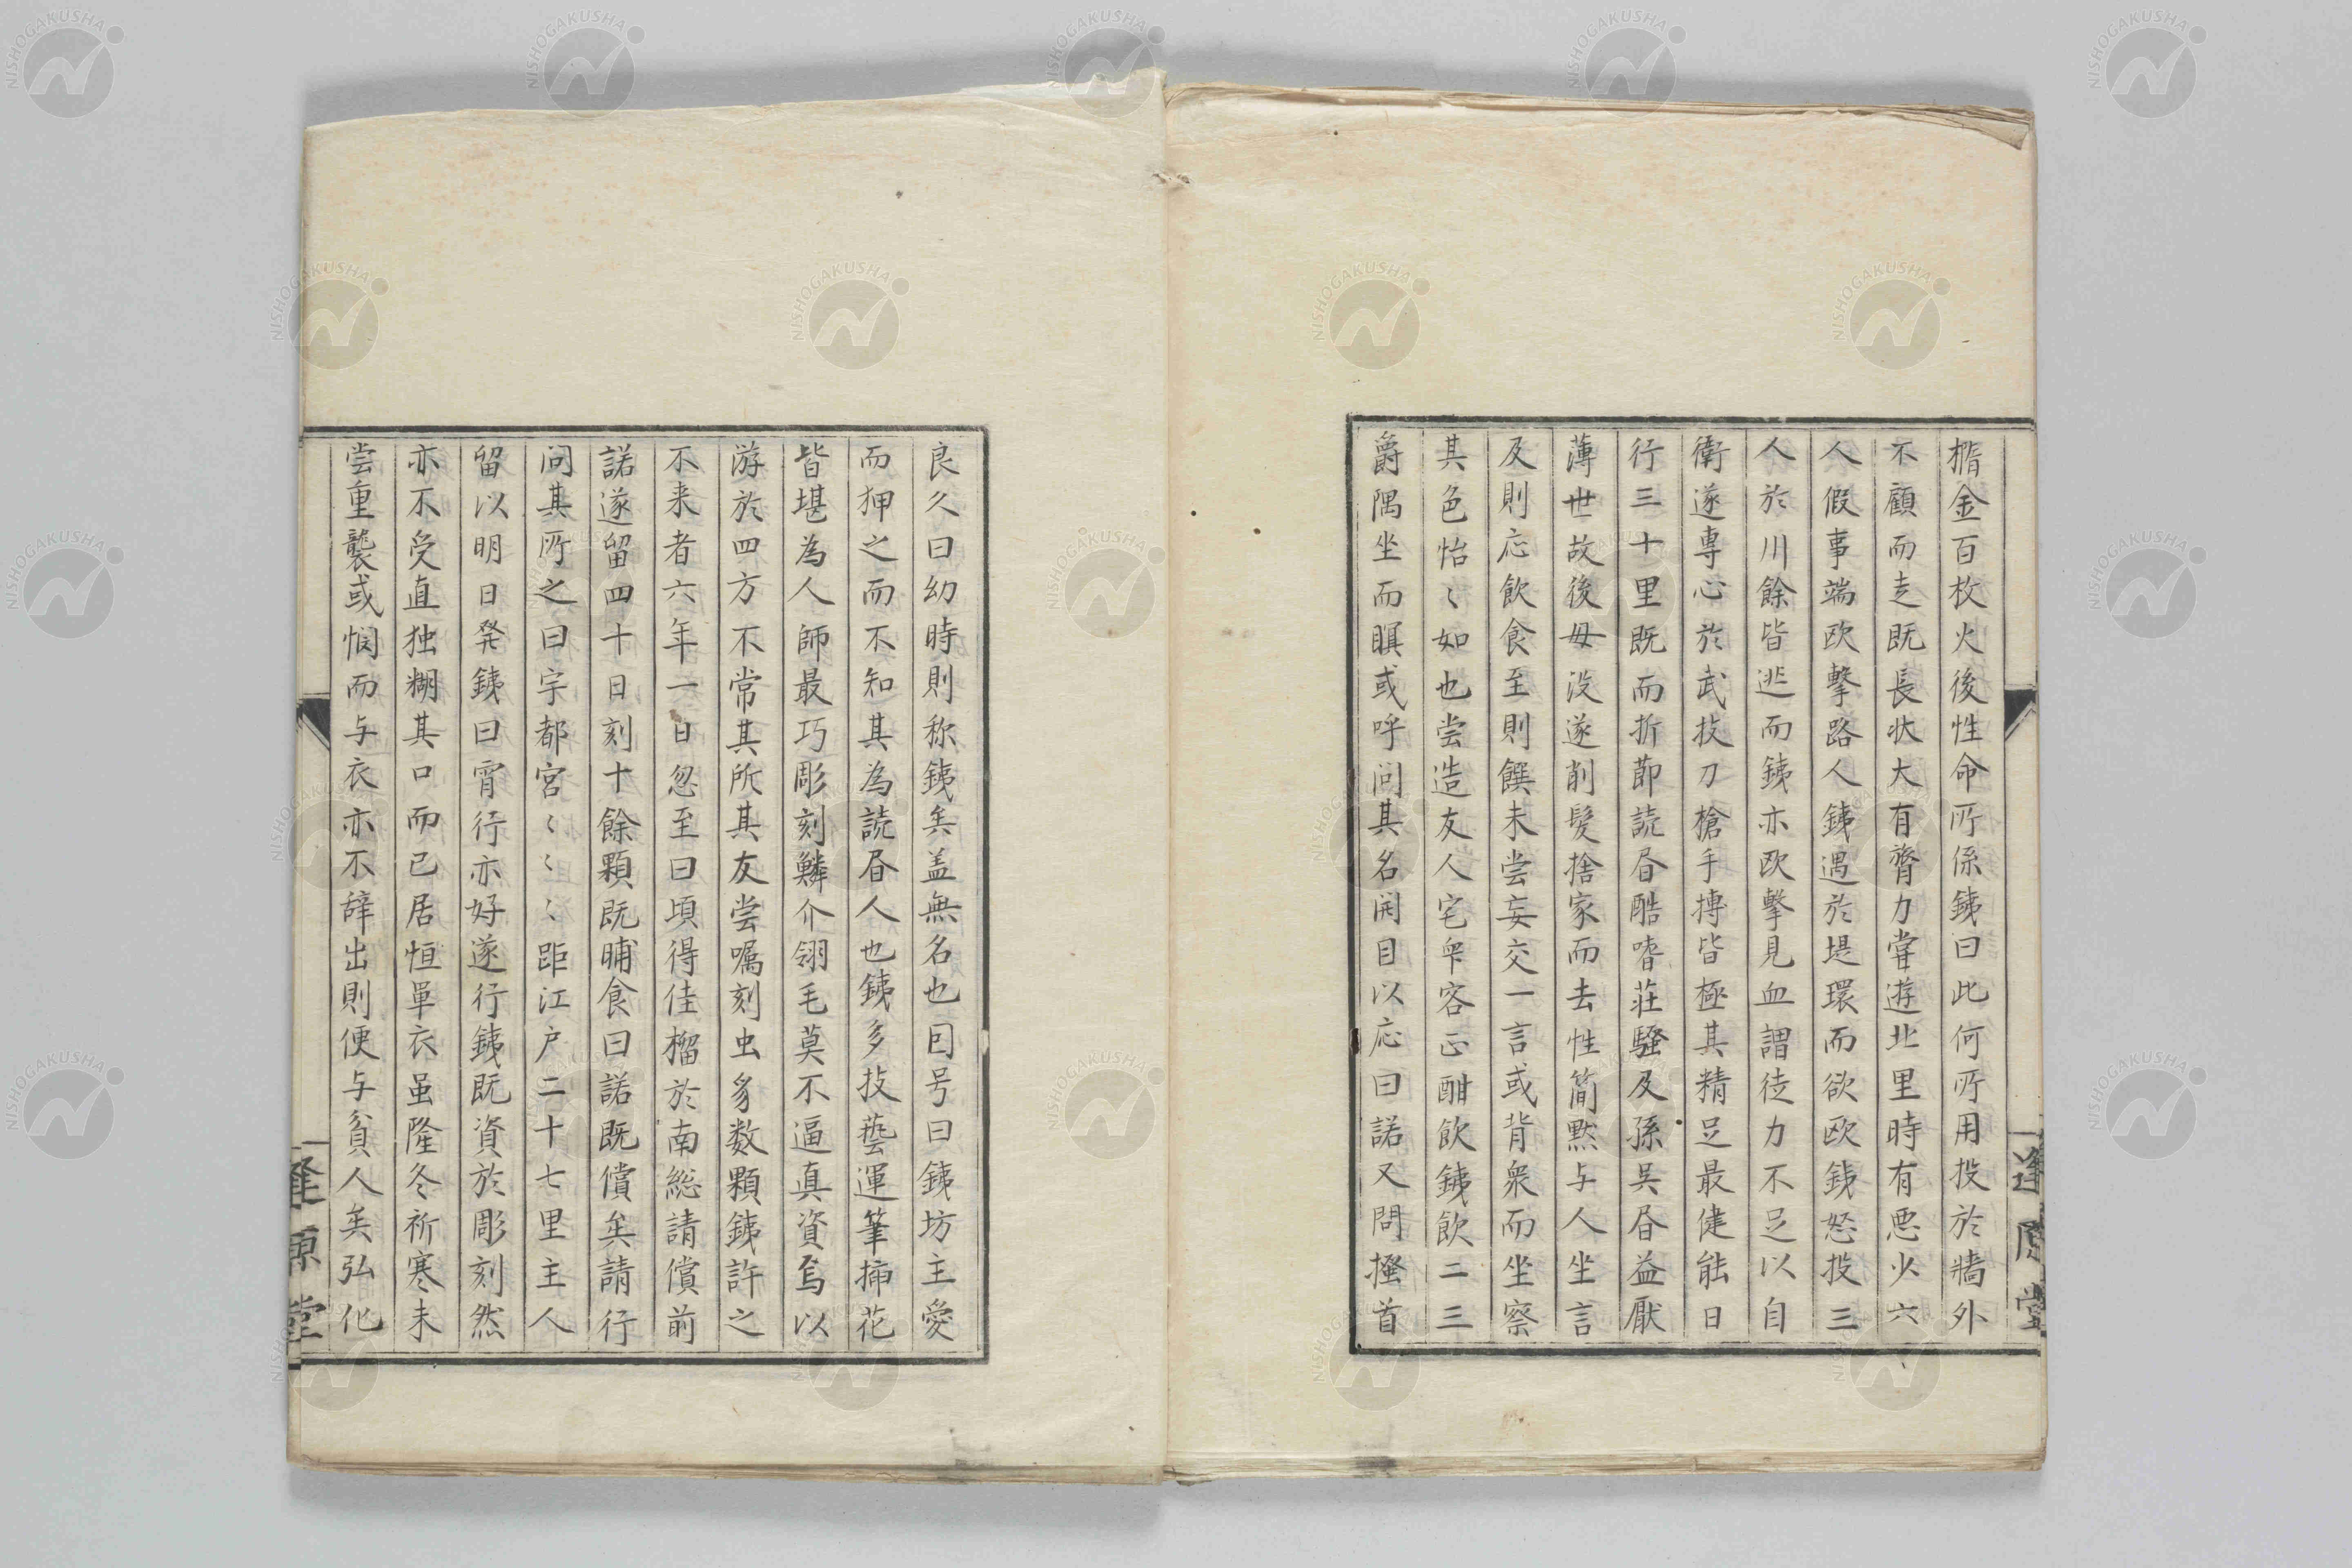 楷金百枚火後性命所係銕曰此何所用投於墻外
不顧而走既長状大有膂力嘗遊北里時有悪少六
人假事端欧撃路人銕遇於堤環而欲欧銕怒投三
人於川餘皆逃而銕亦欧撃見血謂徒力不足以自
衛遂專心於武技刀槍手摶皆極其精足最健能日
行三十里既而折節読昏酷嗜荘騷及孫呉昏益厭
薄世故後母没遂削髮捨家而去性簡黙与人坐言
及則応飲食至則饌未嘗妄交一言或背衆而坐察
其色怡〻如也嘗造友人宅衆客正酣飲銕飲二三
爵隅坐而瞑或呼問其名開目以応曰諾又問掻首
良久曰幼時則称銕矣盖無名也因号曰銕坊主愛
而狎之而不知其為読昏人也銕多技藝運筆挿花
皆堪為人師最巧彫刻鱗介翎毛莫不逼真資焉以
游於四方不常其所其友嘗嘱刻虫豸数顆銕許之
不来者六年一日忽至曰頃得佳榴於南総請償前
諾遂留四十日刻十餘顆既晡食曰諾既償矣請行
問其所之曰宇都宮〻〻〻距江戸二十七里主人
留以明日発銕曰宵行亦好遂行銕既資於彫刻然
亦不受直独糊其口而已居恒単衣虽隆冬祈寒未
嘗重襲或憫而与衣亦不辞出則便与貧人矣弘化
逢原堂
逢原堂
NISHOGAKUSHA